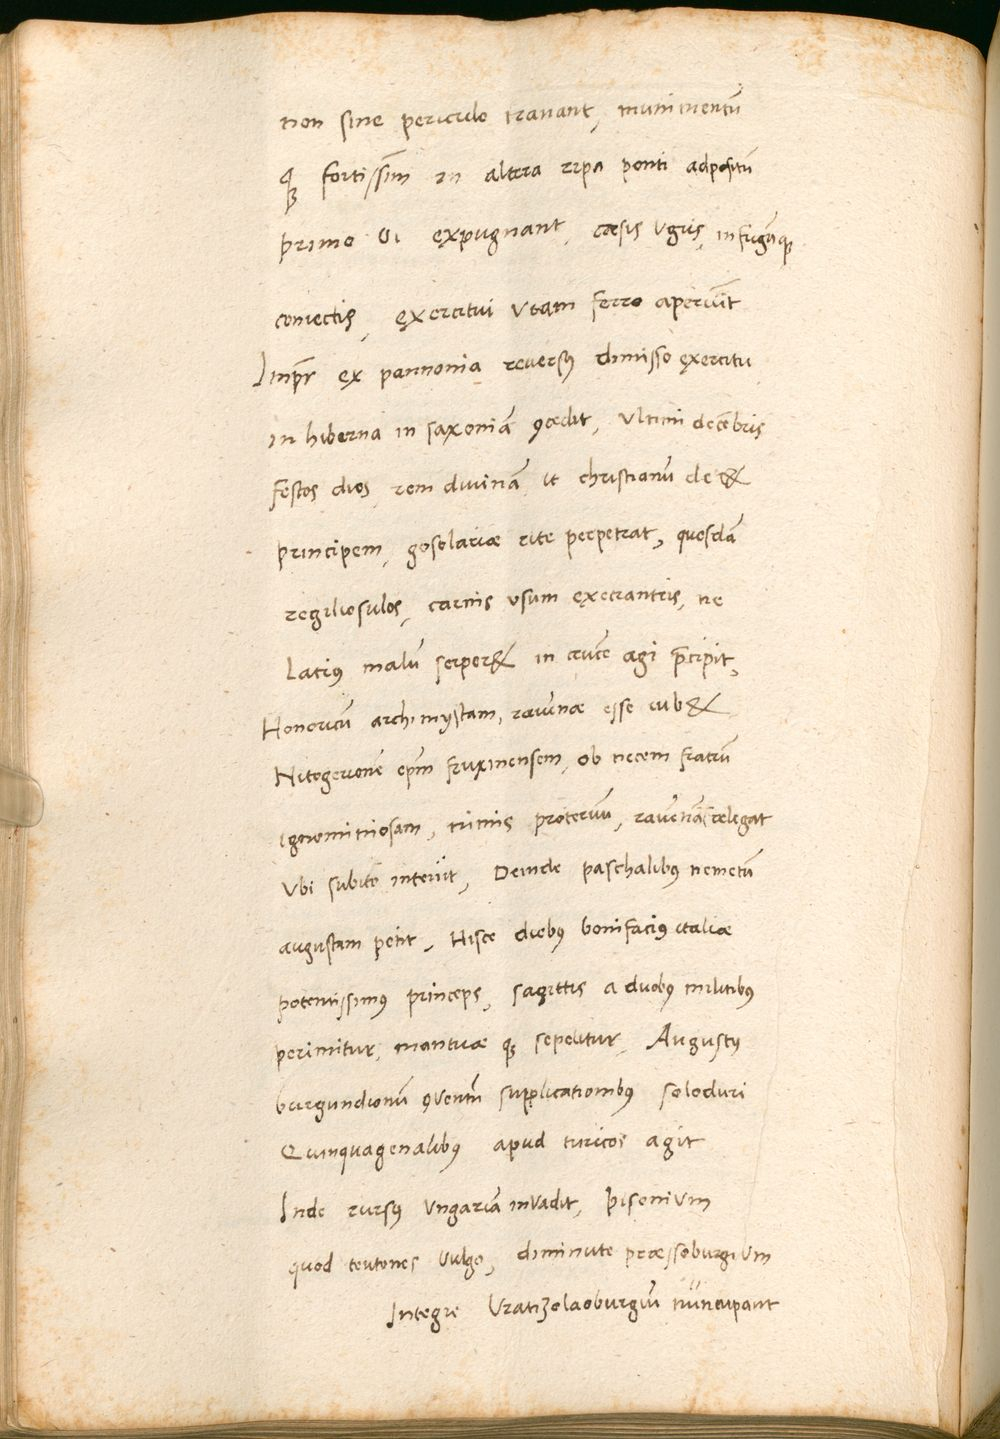 non sine periculo tranant, munimentū
q̨ fortissim̄ in altera ripa ponti adpositū
primo vi expugnant, cæsis Vgris, in fugāq̨
coniectis, exercitui viam ferro aperiūt
Imp̄r ex pannonia reversꝰ dimisso exercitu
in hiberna in saxoniā ꝯcedit, Ultimi decēbris
festos dies, rem divinā ut christianū dec&
principem, goselariæ rite perpetrat, quosdā
regiliosulos, carnis usum execrantis, ne
Latiꝰ malū serper& in cruce agi p̄cipit,
Honoricū archimystam, ravēnæ esse iub&
Nitogerionē ep̄m fruxinensem, ob necem fratrū
ignominiosam, nimis protervū, ravenā relegat
Vbi subito interiit, Deinde paschalibꝰ nemetū
augustam petit, Hisce diebꝰ bonifaciꝰ italiæ
potentissimꝰ princeps, sagittis a duobꝰ militibꝰ
perimitur, mantuæ q̨ sepelitur, Augustꝰ
burgundionū ꝯventū supplicationibꝰ soloduri
Quinquagenalibꝰ apud turicos agit
Inde rursꝰ Vngariā invadit, Pisonium
quod teutones vulgo, diminute præssoburgium
Integre Vratizolaoburgiū nūncupant